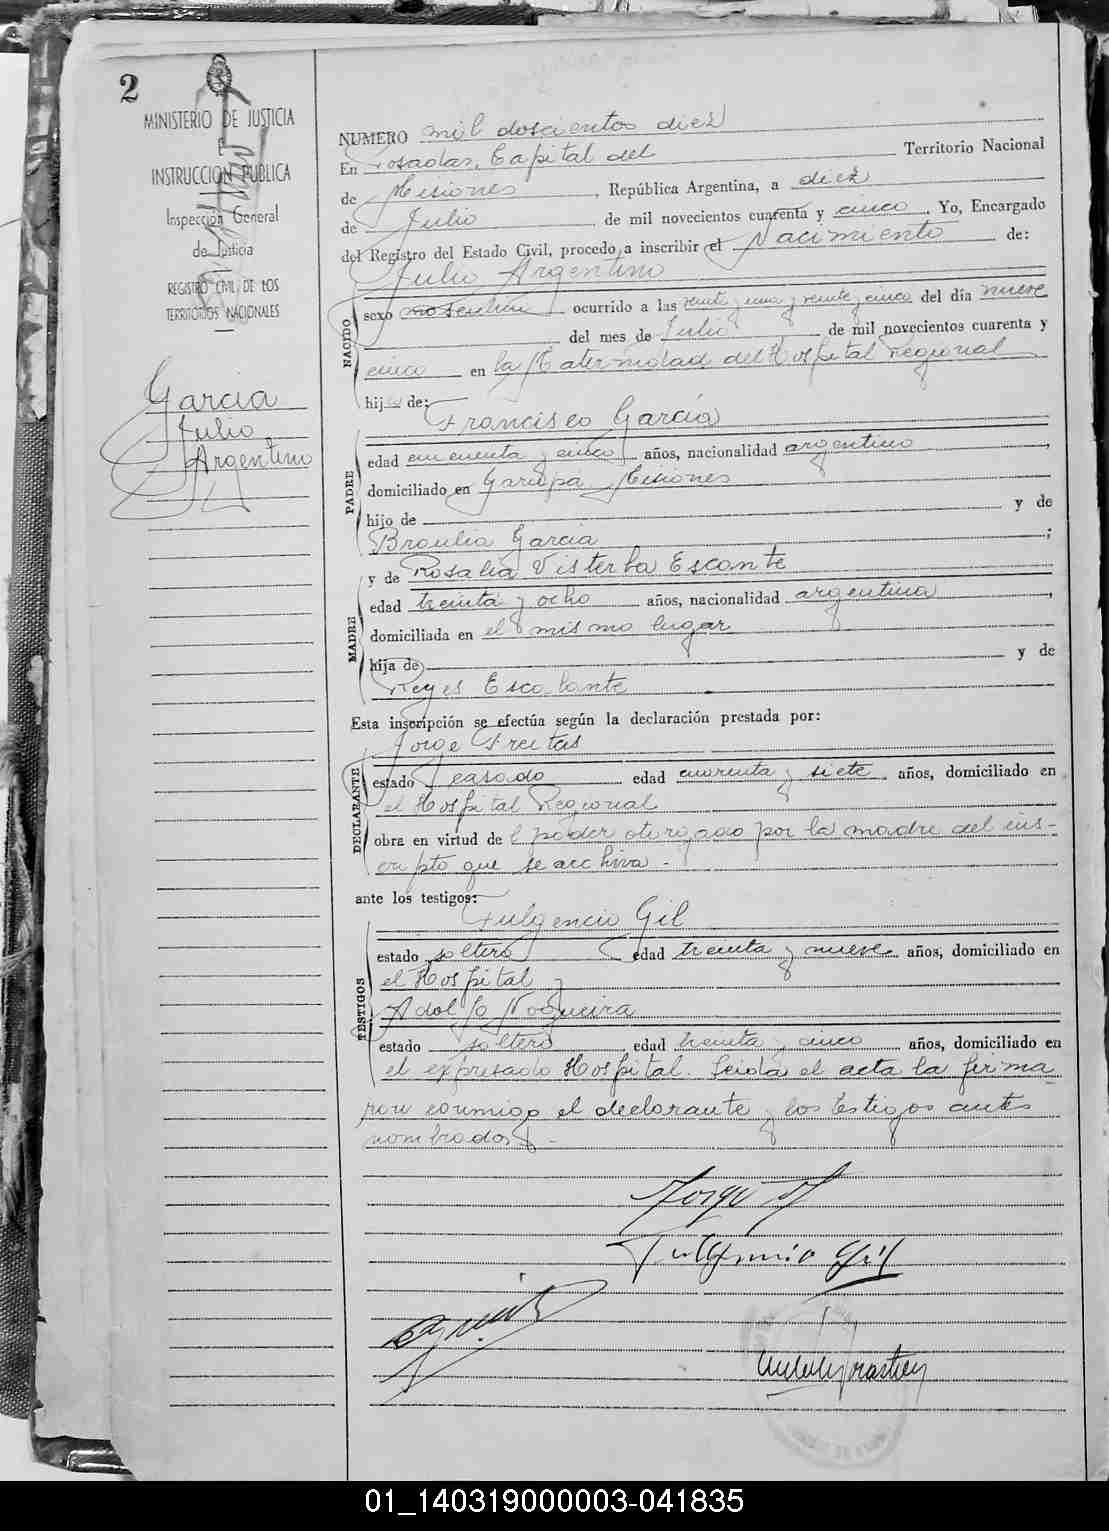 2
MINISTERIO DE JUSTICIA
E
INSTRUCCION PUBLICA
Inspección General
de Justicia
REGISTRO CIVIL DE LOS
TERRITORIOS NACIONALES
Garcia
Julio
Argentino
NUMERO mil doscientos diez
En Posadas, Capital del Territorio Nacional
de Misiones, República Argentina, a diez
de Julio de mil novecientos cuarenta y cinco. Yo, Encargado
del Registro del Estado Civil, procedo a inscribir el Nacimiento de:
Julio Argentino
NACIDO
sexo masculino ocurrido a las veinte y una y veinte y cinco del día nueve
del mes de Julio de mil novecientos cuarenta y
cinco en la Maternidad del Hospital Regional
hijo de:
Francisco García
PADRE
edad cincuenta y cinco años, nacionalidad argentino,
domiciliado en Garupá Misiones
hijo de y de
Braulia Garcia;
y de Rosalia Visterba Escante
MADRE
edad treinta y ocho años, nacionalidad argentina,
domiciliada en el mismo lugar
hija de y de
Reyes Escalante
Esta inscripción se efectúa según la declaración prestada por:
Jorge Freitas
DECLARANTE
estado casado edad cuarenta y siete años, domiciliado en
el Hospital Regional
obra en virtud de l poder otorgado por la madre del ins-
cripto que se archiva.-
ante los testigos:
Fulgencio Gil
TESTIGOS
estado soltero edad treinta y nueve años, domiciliado en
el Hospital y
Adolfo Nogueira
estado soltero edad treinta y cinco años, domiciliado en
el expresado Hospital. Leida el acta la firma
ron conmigo el declarante y los testigos antes
nombrados.-
Jorge
Fulgencio Gil
01_140319000003-041835